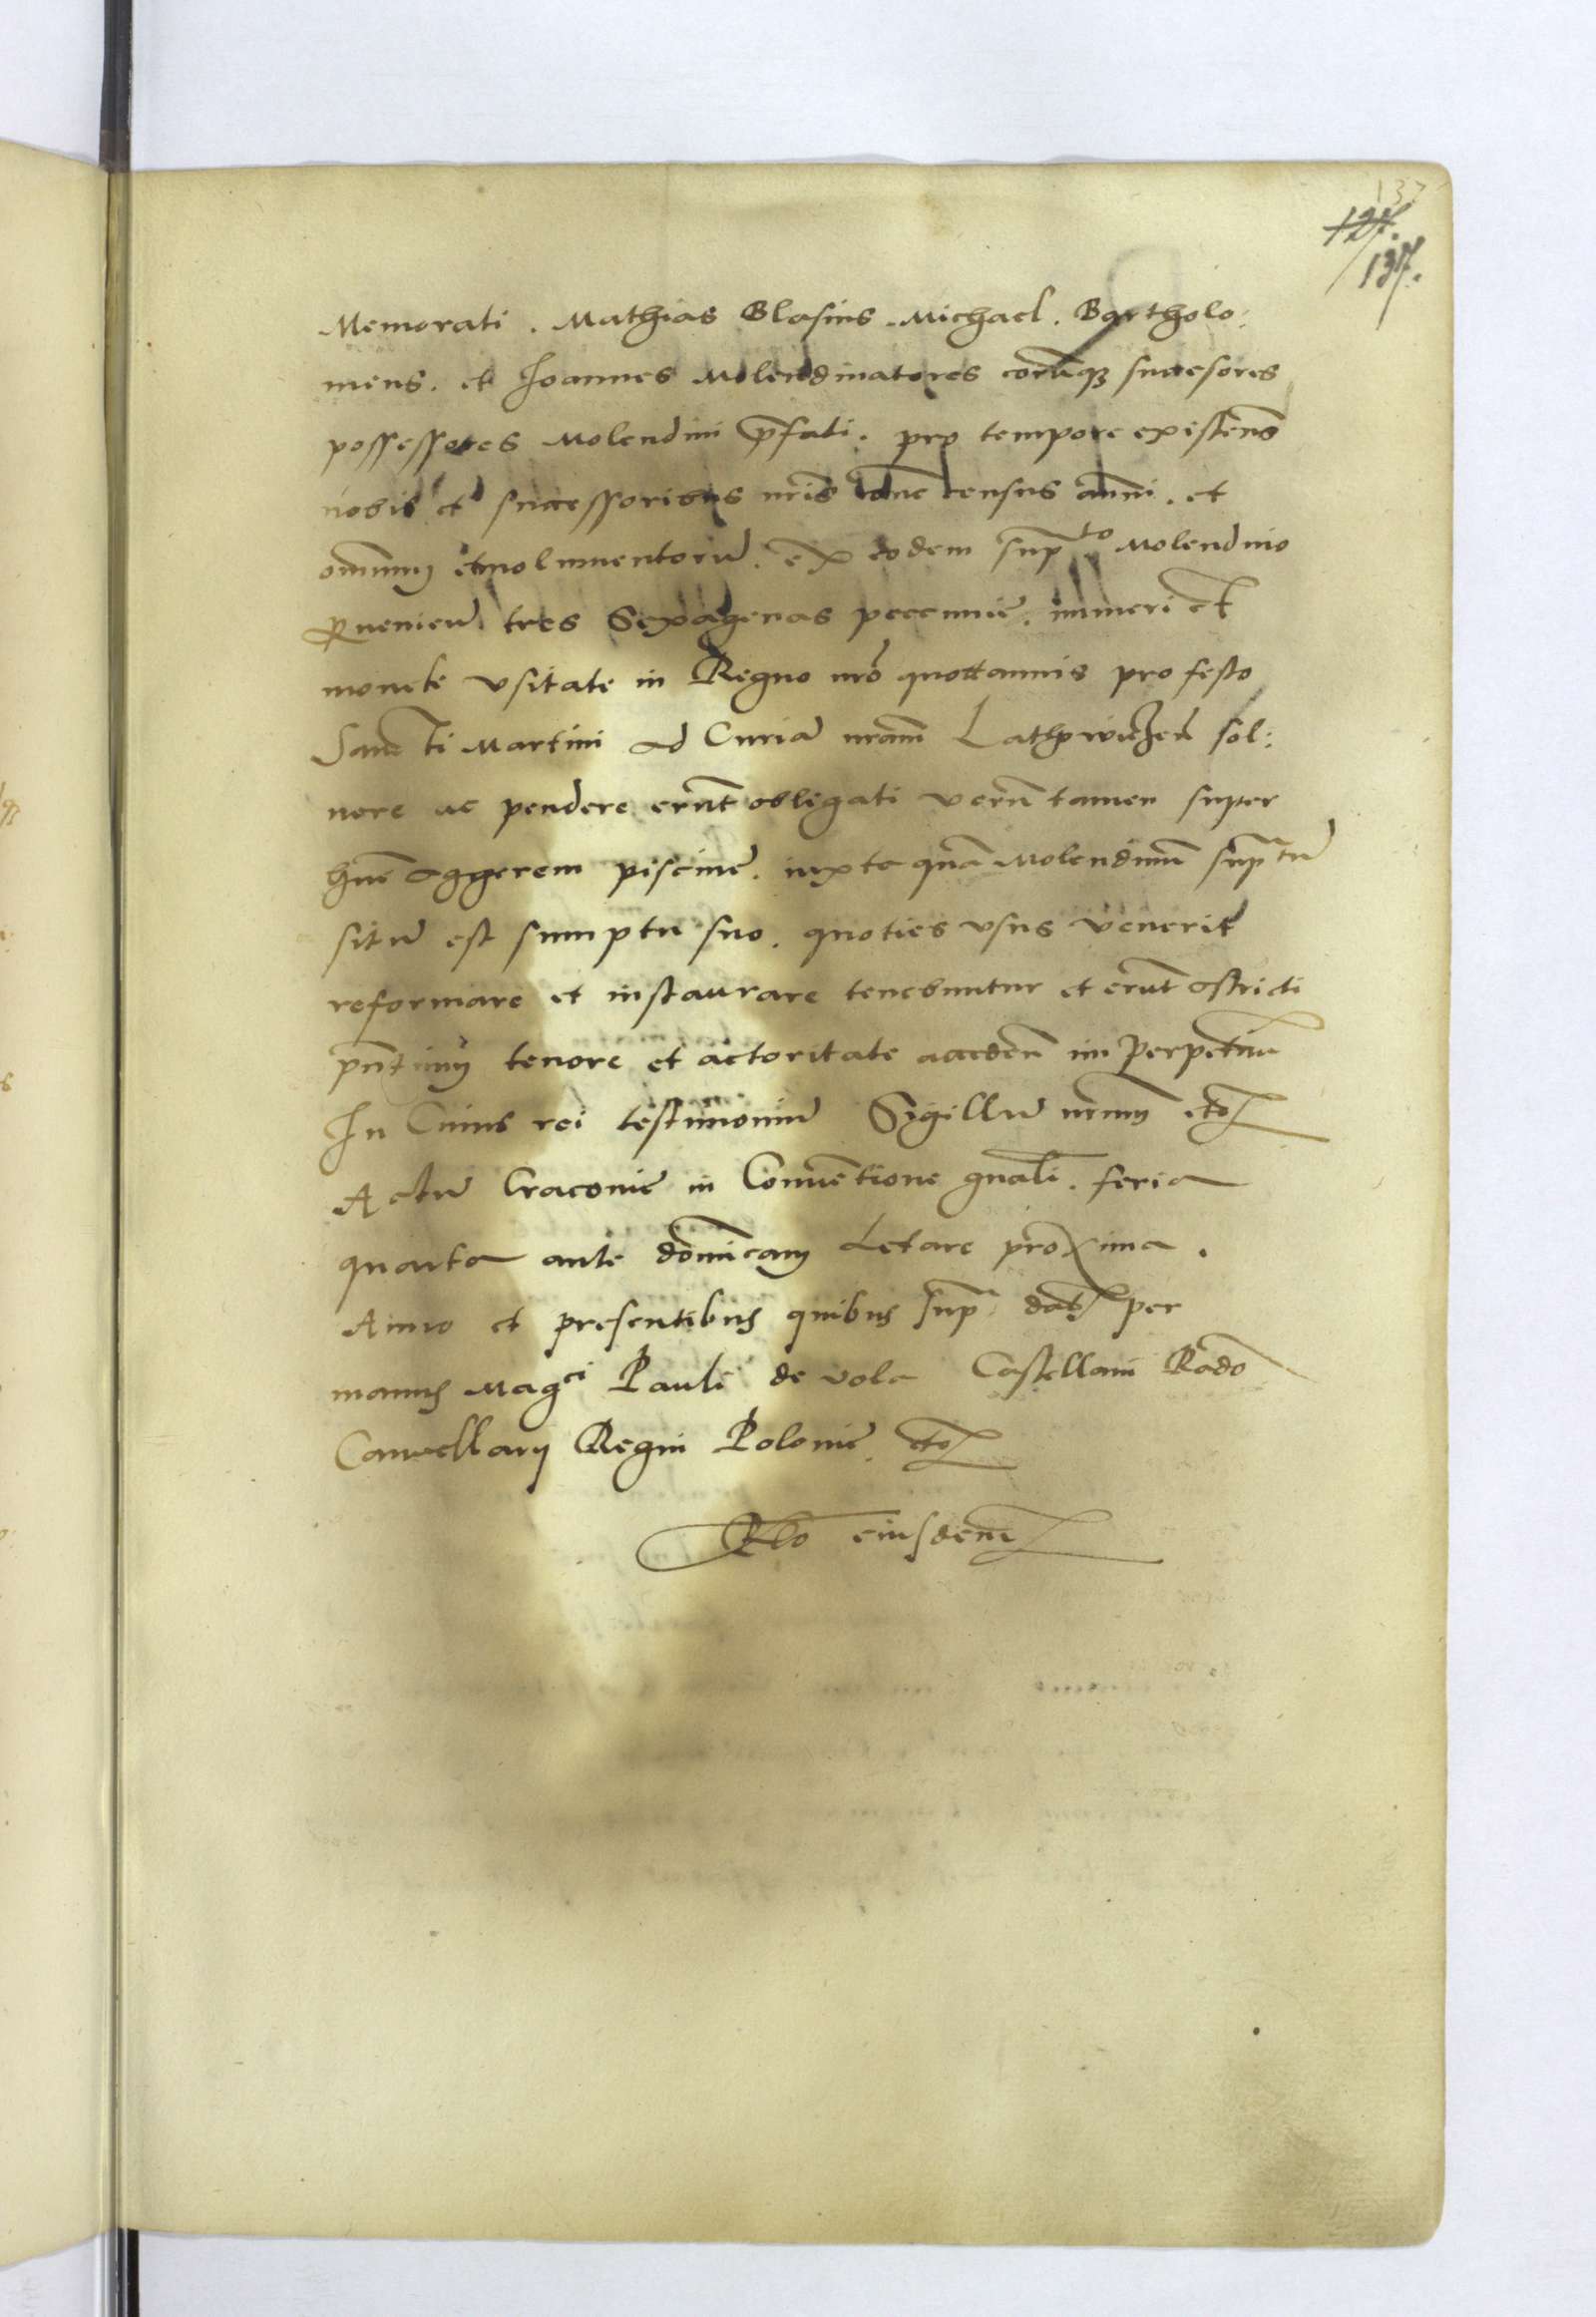 137
127.
137.
Memorati. Mathias Blasius. Michael. Bartholo:
meus. et Joannes Molendinatores eorūq₃ succesores
possessores Molendini p̄fati. pro tempore existeñ
nobis et successoribus nr̄is census anni. et
omnium emolumentorū. ex eodem sup^to Molendino
ꝓuenieñ. tres Sexagenas peccunie. numeri et
monete vsitate in Regno nr̄o quottannis pro festo
Sancti Martini ad Curiā nr̄am sol:
uere ac pendere erūt obligati verūtamen super
hūc aggerem piscine. iuxta quā Molendinū sup^atū
sitū est sumptu suo. quoties vsus venerit
reformare et instaurare tenebuntur et erūt astricti
pn̄tium tenore et actoritate accedeñ in perpetuū
In Cuius rei testimoniū Sigillū nr̄um etc
Actū Cracovie in Conuētione gn̄ali. feria
quarta ante dominicam Letare proxima.
Anno et presentibus quibus sup^a dat per
manus Mag^ci Pauli de vola Castellani Rado
Cancellarij Regni Polonie. etc
Rlo eiusdem